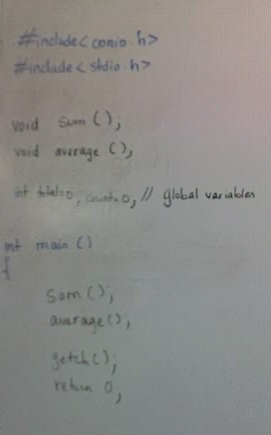 #include<conio.h>
#include<stdio.h>
void sum();
void average();
int total=0, count=0, // global variables
int main()
{
sum();
average();
getch();
return 0;